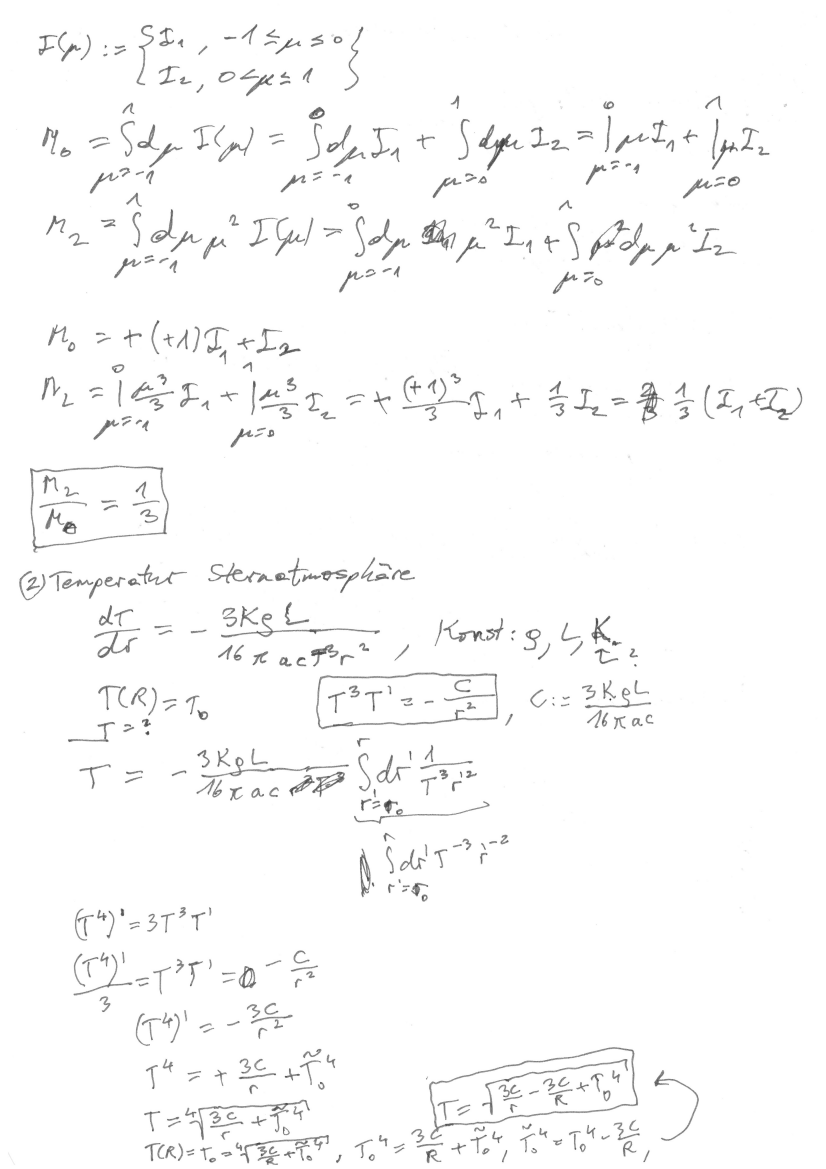 I(μ) := { I₁ , -1 ≤ μ ≤ 0
I₂ , 0 < μ ≤ 1 }
M₀ = ∫_{μ=-1}^{1} dμ I(μ) = ∫_{μ=-1}^{0} dμ I₁ + ∫_{μ=0}^{1} dμ I₂ = |_{μ=-1}^{0} μ I₁ + |_{μ=0}^{1} μ I₂
M₂ = ∫_{μ=-1}^{1} dμ μ² I(μ) = ∫_{μ=-1}^{0} dμ μ² I₁ + ∫_{μ=0}^{1} dμ μ² I₂
M₀ = + (+1) I₁ + I₂
M₂ = |_{μ=-1}^{0} μ³/3 I₁ + |_{μ=0}^{1} μ³/3 I₂ = + (+1)³/3 I₁ + 1/3 I₂ = 1/3 (I₁ + I₂)
M₂/M₀ = 1/3
(2) Temperatur Sternatmosphäre
dT/dr = - 3KρL / 16π ac T³ r² , Konst: ρ, L, K
T(R) = T₀
T = ?
T³T' = - C/r² , C := 3KρL / 16π ac
T = - 3KρL / 16π ac ∫_{r'=r₀}^{r} dr' 1/(T³ r'²)
∫_{r'=r₀}^{r} dr' T⁻³ r'⁻²
(T⁴)' = 3T³T'
(T⁴)'/3 = T³T' = - C/r²
(T⁴)' = - 3C/r²
T⁴ = + 3C/r + T̃₀⁴
T = ⁴√(3C/r + T̃₀⁴)
T = √(3C/r - 3C/R + T₀⁴)
T(R) = T₀ = ⁴√(3C/R + T̃₀⁴) , T₀⁴ = 3C/R + T̃₀⁴ , T̃₀⁴ = T₀⁴ - 3C/R ,